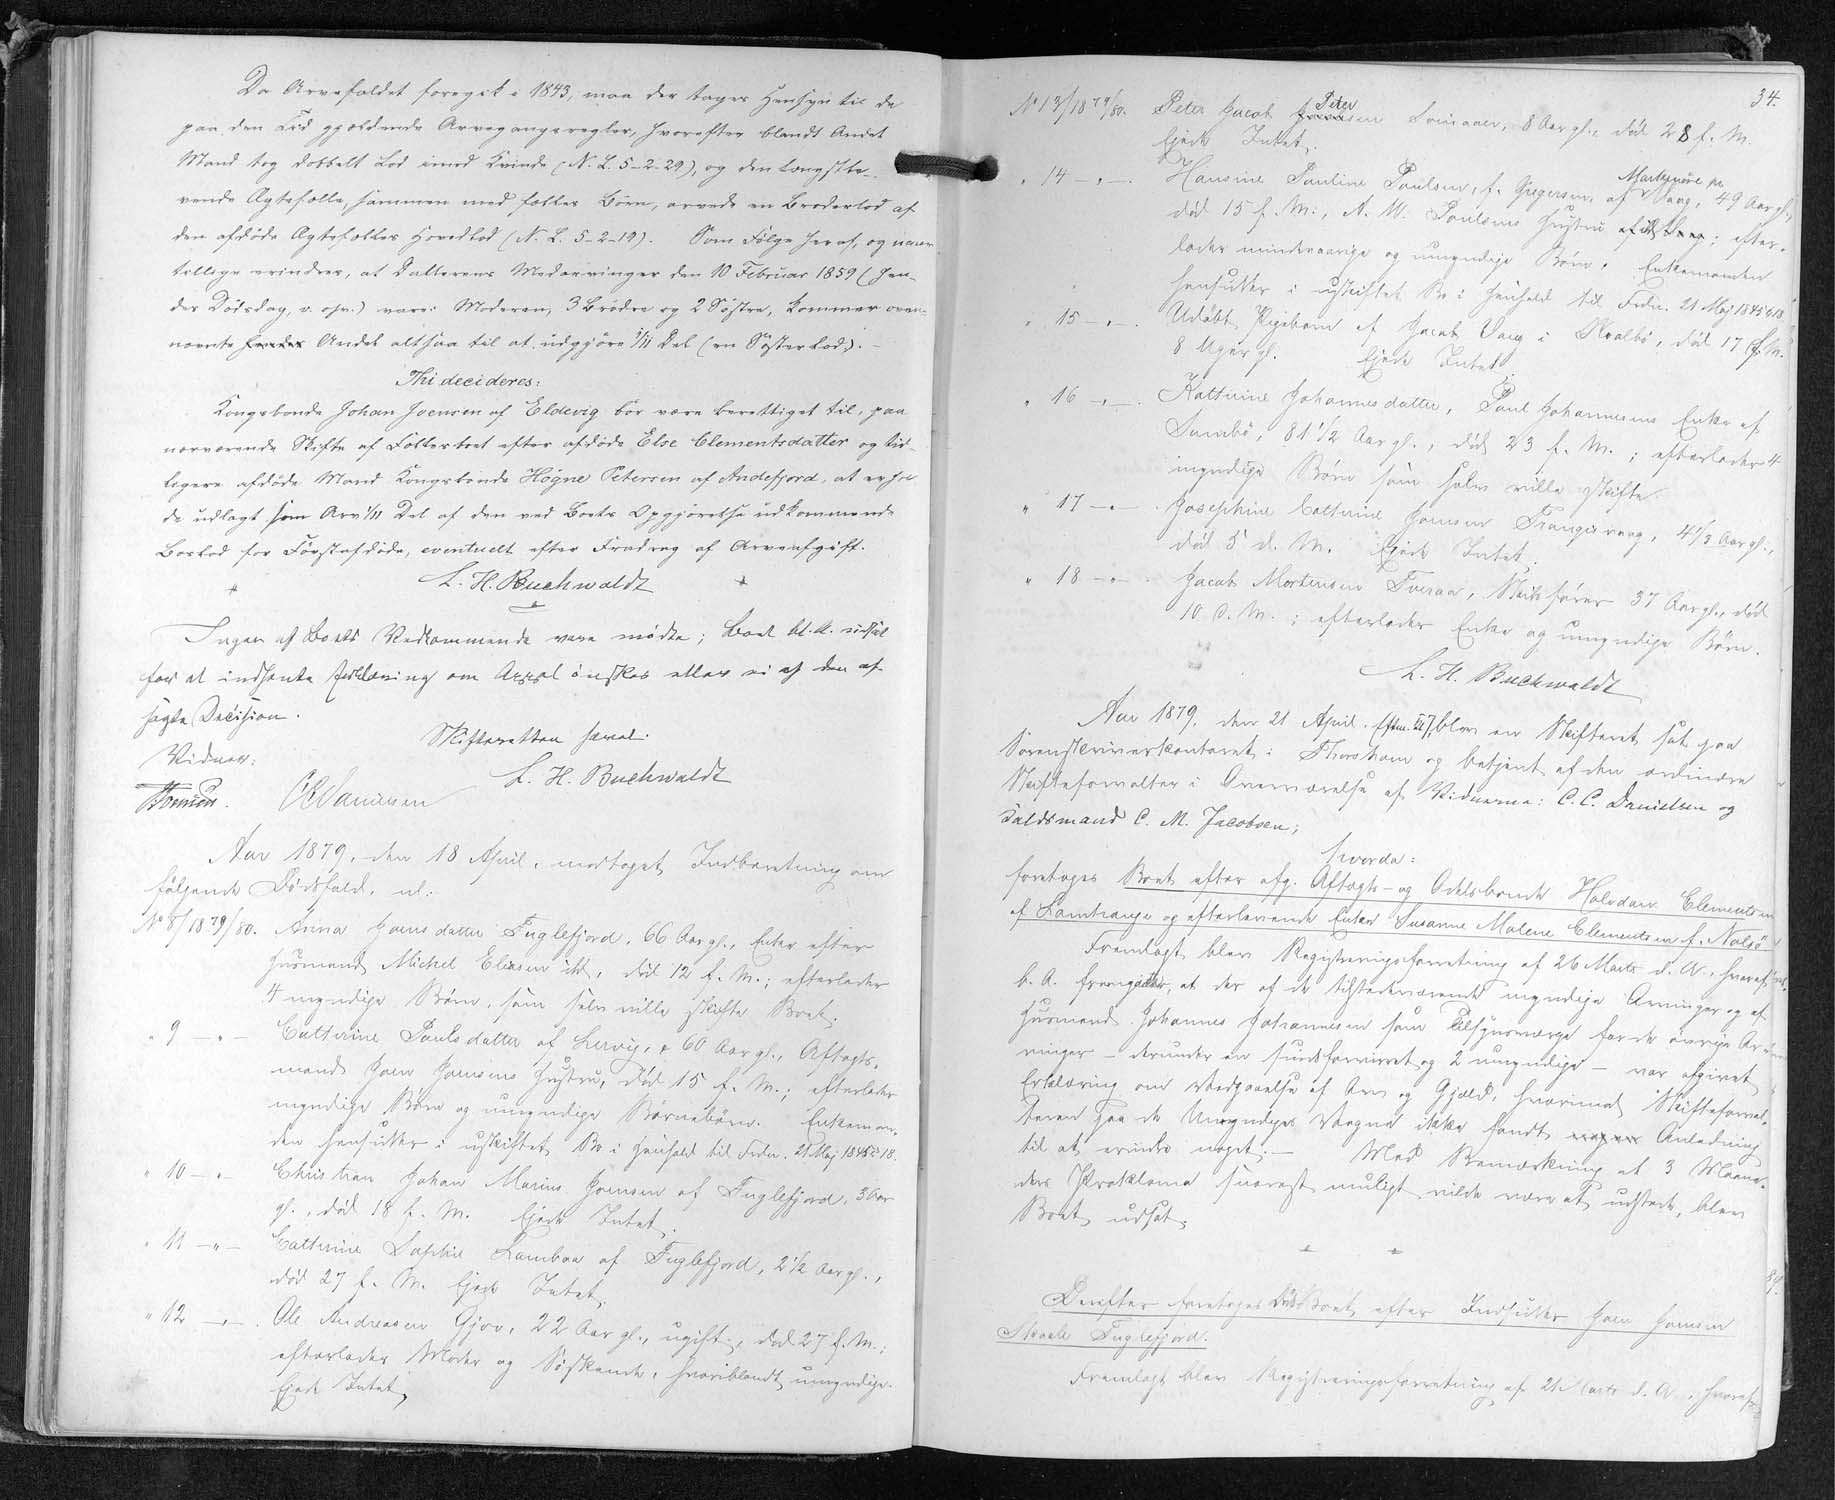 Da Arvefaldet foregik i 1843, maa der tages Hensyn til de
paa den Tid gjældende Arvegangsregler, hvorefter blandt Andet
Mand tog dobbelt Lod imod Kvinde (N. L. 5-2-29), og den længstle-
vende Ægtefælle, sammen med fælles Børn, arvede en Broderlod af
den afdøde Ægtefælles Hovedlod (N. L. 5-2-19). Som Følge heraf, og naar
tillige erindres, at Datterens Medarvinger den 10 Februar 1859 (hen-
des Dödsdag, v. ofn.) vare: Moderen, 3 Brödre og 2 Söstre, kommer oven-
nævnte Andel altsaa til at udgjöre 1/11 Del (en Søsterlod). -
Thi decideres:
Kongsbonde Johan Joensen af Eldevig bör være berettiget til, paa
nærværende Skifte af Fællesboet efter afdöde Else Clementsdatter og tid-
ligere afdöde Mand Kongsbonde Högne Petersen af Andefjord, at erhol-
de udlagt som Arv 1/11 Del af den ved Boets Opgjörelse udkommende
Boslod for Förstafdöde, eventuelt efter Fradrag af Arveafgift.
L. H. Buchwaldt
Ingen af Boets Vedkommende vare mødte; Boet bl. A. udsat
for at indhente Erklæring om Appel ønskes eller ei af den af-
sagte Decision.
Skifteretten hævet.
Vidner:
L. H. Buchwaldt
CC Danielsen
Aar 1879, den 18 April, modtaget Indberetning om
følgende Dødsfald, nl:
No 8/1879/80. Anna Joensdatter Fuglefjord, 66 Aar gl., Enke efter
Husmand Michel Eliasen ibd., død 12 f. M.; efterlader
4 myndige Børn, som selv ville skifte Boet.
" 9 -"- Cathrine Poulsdatter af Lervig, 60 Aar gl., Aftægts-
mand Joen Joensens Hustru, död 15 f. M.; efterlader
myndige Børn og umyndige Børnebörn. Enkeman-
den hensidder i uskiftet Bo i Henhold til Frdn. 21 Maj 1845 § 18.
" 10 -"- Christian Johan Marius Joensen af Fuglefjord, 3 Aar
gl., död 18 f. M. Ejede Intet.
" 11 -"- Cathrine Sophie Lamboa af Fuglefjord, 2 1/2 Aar gl.,
död 27 f. M. Ejede Intet.
" 12 -"- Ole Andreasen Gjov, 22 Aar gl., ugift, död 27 f. M.;
efterlader Moder og Söskende, hvoriblandt umyndige.
Ejede Intet.
34.
No 13/1879/80. Peter Jacob Peter 8 Aar gl., död 28 f. M.
Ejede Intet.
" 14 -"- Hansine Pauline Poulsen, f. af Vaag, 49 Aar gl.,
död 15 f. M., Poulsens Hustru ; efter-
lader mindreaarige og umyndige Börn. Enkemanden
hensidder i uskiftet Bo i Henhold til Frdn. 21 Maj 1845 § 18
" 15 -"- Udöbt Pigebarn af Jacob Vang i Qvalbö, död 17 f. M.
8 Uger gl. Ejede Intet.
" 16 -"- Kathrine Johannesdatter, Poul Johannesens Enke af
Sumbö, 81 1/2 Aar gl., död 23 f. M.; efterlader 4
myndige Börn som selv ville skifte
" 17 -"- Josephine Cathrine Joensen Trangisvaag, 4 1/3 Aar gl.,
död 5 d. M. Ejede Intet.
" 18 -"- Jacob Mortensen Tveraa, Skibsfører 37 Aar gl., död
10 d. M.; efterlader Enke og umyndige Börn.
L. H. Buchwaldt
Aar 1879, den 21 April, blev en Skifteret sat paa
Sorenskriverkontoret i Thorshavn og betjent af den ordinære
Skifteforvalter i Overværelse af Vidnerne: C. C. Danielsen og
Retsmand C. M. Jacobsen;
hvorda:
foretoges Boet efter afg. Aftægts- og Odelsbonde Halvdan Clementsen
af Lamhauge og efterlevende Enke Susanne Malene Clementsen f. Nolsö
Fremlagt blev Registreringsforretning af 26 Marts d. A., hvoraf
b. A. fremgaar, at der af de tilstedeværende myndige Arvinger og af
Husmand Johannes Johannesen som Tilsynsværge for de övrige Ar-
vinger - derunder en sindsforvirret og 2 umyndige - var afgivet
Erklæring om Vedgaaelse af Arv og Gjæld, hvorimod Skifteforval-
teren paa de Umyndiges Vegne ikke fandt Anledning
til at erindre noget. - Med Bemærkning at 3 Maane-
ders Proklama snarest muligt vilde være at udstede, blev
Boet udsat.
Derefter foretoges Boet efter Indsidder Joen Joensen
Skaale Fuglefjord.
Fremlagt blev Registreringsforretning af 21 Marts d. A., hvoraf